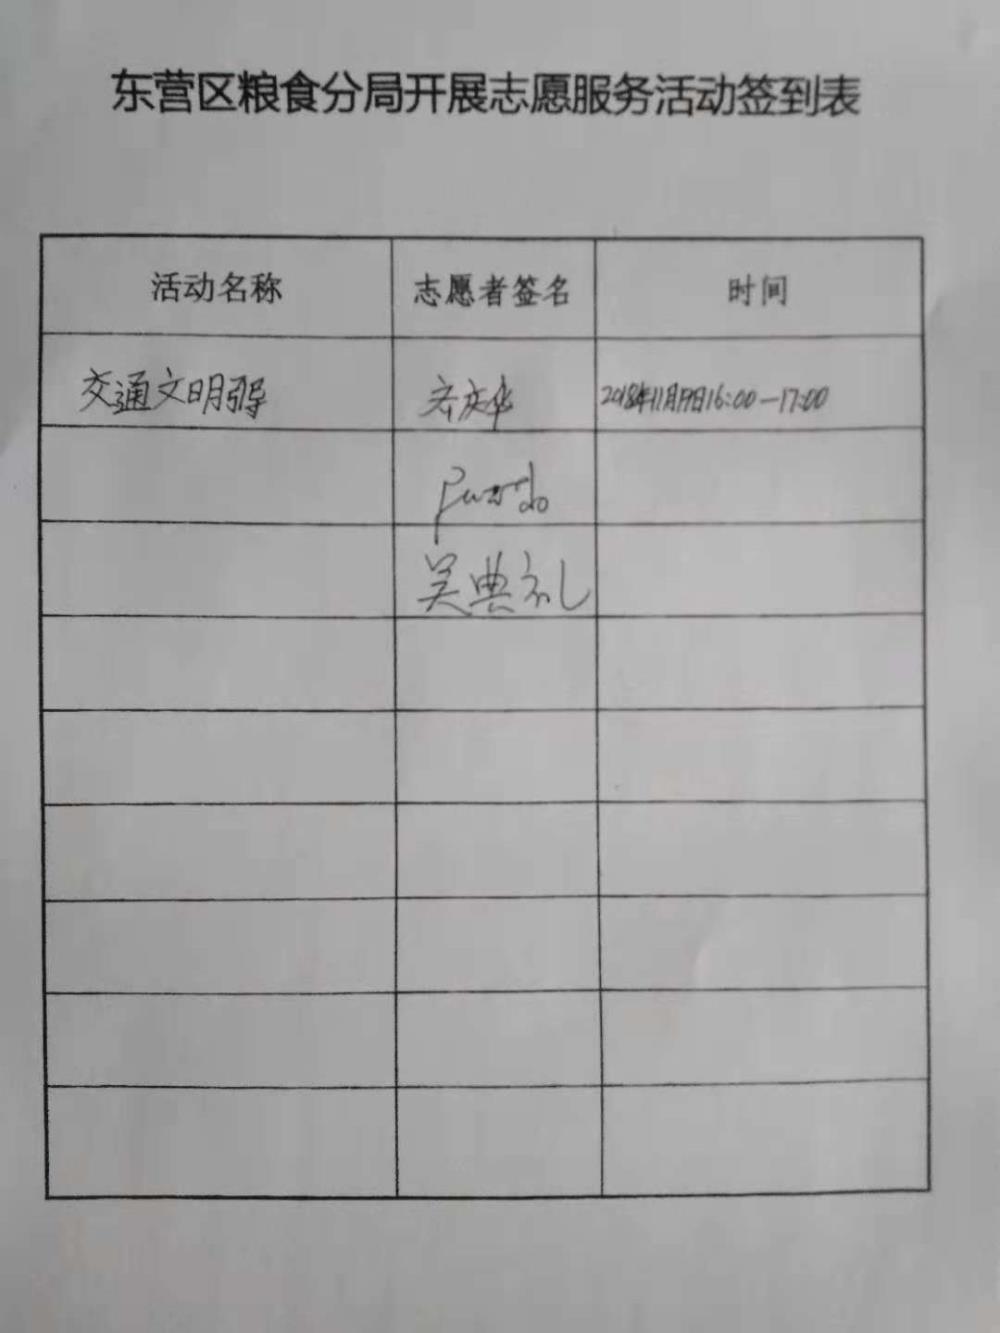 东营区粮食分局开展志愿服务活动签到表
活动名称 志愿者签名 时间
交通文明引导 2018年11月19日16:00—17:00
吴典礼